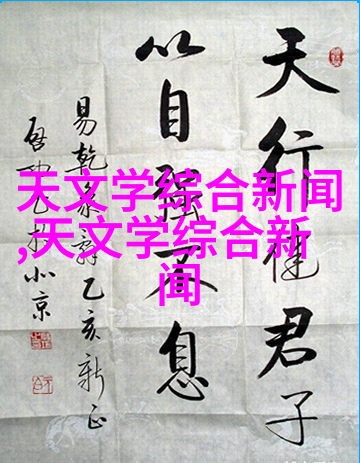 天行健君子
以自强不息
易乾象辞乙亥新正
启功书于北京
天文学综合新闻
,天文学综合新
闻